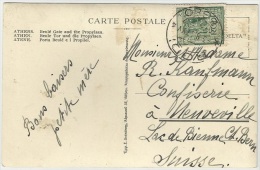 CARTE POSTALE
ATHENES. Beulé Gate and the Propylaea.
ATHEN. Beule Tor und die Propyläen.
ATENE. Porta Beulé e i Propilei.
Monsieur et Madame
R. Kaufmann
Confiserie
à Neuveville
Lac de Bienne Ct. Bern
Suisse.
Bons baisers
petite mère